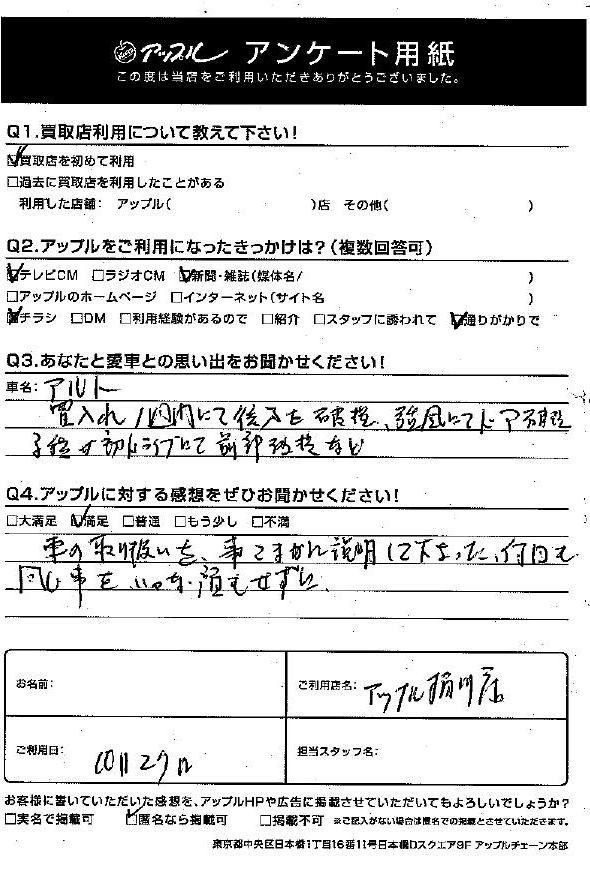 アップル アンケート用紙
この度は当店をご利用いただきありがとうございました。
Q1.買取店利用について教えて下さい!
☑買取店を初めて利用
□過去に買取店を利用したことがある
利用した店舗: アップル( )店 その他( )
Q2.アップルをご利用になったきっかけは?(複数回答可)
☑テレビCM □ラジオCM ☑新聞・雑誌(媒体名/ )
□アップルのホームページ □インターネット(サイト名 )
☑チラシ □DM □利用経験があるので □紹介 □スタッフに誘われて ☑通りがかりで
Q3.あなたと愛車との思い出をお聞かせください!
車名: アルト
買入れ1週間内にて後方を破損、強風にてドア破損
子供が初ドライブにて前部破損など
Q4.アップルに対する感想をぜひお聞かせください!
□大満足 ☑満足 □普通 □もう少し □不満
車の取り扱いを、事こまかに説明して下さった、何回も
同じ事をいやな顔もせずに。
お名前:
ご利用店名: アップル 店
ご利用日: 10月27日
担当スタッフ名:
お客様に書いていただいた感想を、アップルHPや広告に掲載させていただいてもよろしいでしょうか?
□実名で掲載可 ☑匿名なら掲載可 □掲載不可 ※ご記入がない場合は匿名での掲載とさせていただきます。
東京都中央区日本橋1丁目16番11号日本橋Dスクエア9F アップルチェーン本部